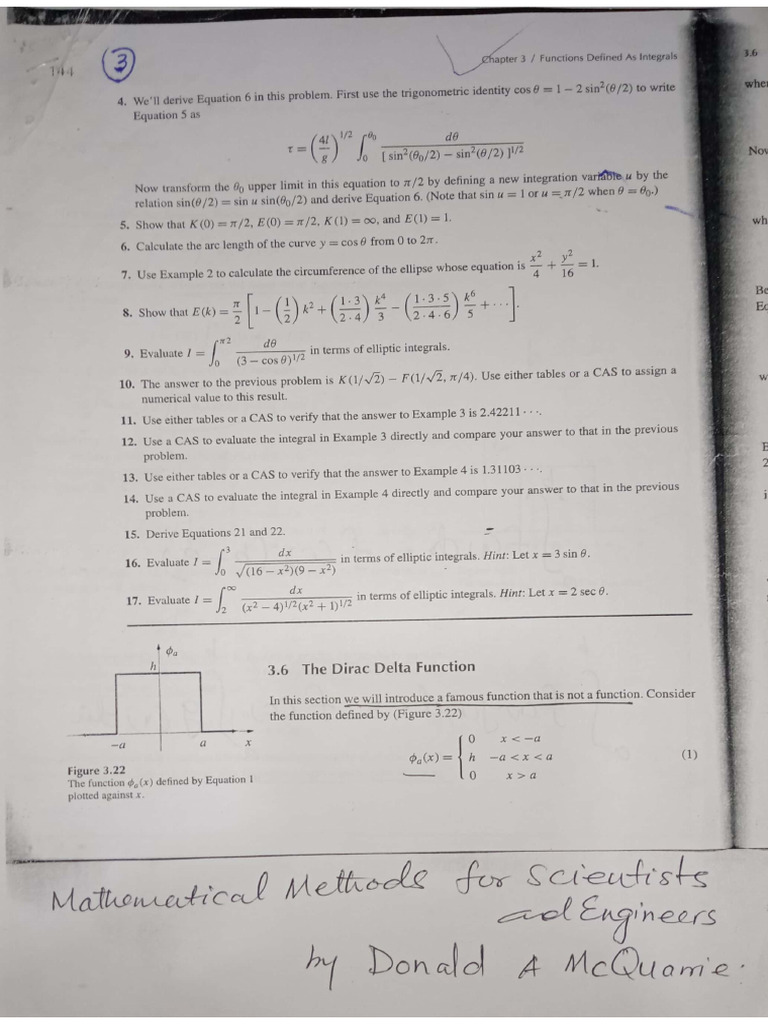 144
3
Chapter 3 / Functions Defined As Integrals
4. We'll derive Equation 6 in this problem. First use the trigonometric identity cos θ = 1 − 2 sin²(θ/2) to write
Equation 5 as
τ = (4l/g)^1/2 ∫₀^θ₀ dθ / [ sin²(θ₀/2) − sin²(θ/2) ]^1/2
Now transform the θ₀ upper limit in this equation to π/2 by defining a new integration variable u by the
relation sin(θ/2) = sin u sin(θ₀/2) and derive Equation 6. (Note that sin u = 1 or u = π/2 when θ = θ₀.)
5. Show that K(0) = π/2, E(0) = π/2, K(1) = ∞, and E(1) = 1.
6. Calculate the arc length of the curve y = cos θ from 0 to 2π.
7. Use Example 2 to calculate the circumference of the ellipse whose equation is x²/4 + y²/16 = 1.
8. Show that E(k) = π/2 [ 1 − (1/2) k² + (1·3/2·4) k⁴/3 − (1·3·5/2·4·6) k⁶/5 + ··· ].
9. Evaluate I = ∫₀^π2 dθ / (3 − cos θ)^1/2 in terms of elliptic integrals.
10. The answer to the previous problem is K(1/√2) − F(1/√2, π/4). Use either tables or a CAS to assign a
numerical value to this result.
11. Use either tables or a CAS to verify that the answer to Example 3 is 2.42211 ···.
12. Use a CAS to evaluate the integral in Example 3 directly and compare your answer to that in the previous
problem.
13. Use either tables or a CAS to verify that the answer to Example 4 is 1.31103 ···.
14. Use a CAS to evaluate the integral in Example 4 directly and compare your answer to that in the previous
problem.
15. Derive Equations 21 and 22.
16. Evaluate I = ∫₀³ dx / √(16 − x²)(9 − x²) in terms of elliptic integrals. Hint: Let x = 3 sin θ.
17. Evaluate I = ∫₂^∞ dx / (x² − 4)^1/2(x² + 1)^1/2 in terms of elliptic integrals. Hint: Let x = 2 sec θ.
ϕₐ
h
−a a x
Figure 3.22
The function ϕₐ(x) defined by Equation 1
plotted against x.
3.6 The Dirac Delta Function
In this section we will introduce a famous function that is not a function. Consider
the function defined by (Figure 3.22)
ϕₐ(x) = { 0 x < −a
h −a < x < a (1)
0 x > a
3.6
Now
wh
Mathematical Methods for Scientists
and Engineers
by Donald A McQuarrie.